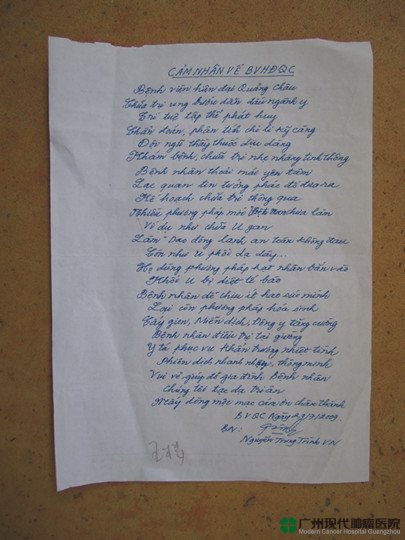 CẢM NHÂN VỀ BVHĐQC
Bệnh viện hiện đại Quảng châu
Chữa trị ung bướu dẫn đầu ngành y
Trí tuệ tập thể phát huy
Chẩn đoán, phân tích chi li kỹ càng
Đội ngũ thầy thuốc dịu dàng
Khám bệnh, chữa trị nhẹ nhàng tinh thông
Bệnh nhân thoải mái yên tâm
Lạc quan tin tưởng phác đồ đưa ra
Kế hoạch chữa trị thông qua
Nhiều phương pháp mới chưa làm
Ví dụ như chữa U gan
Làm "Dao đông lạnh an toàn không đau
Còn như U phổi dạ dày...
Họ dùng phương pháp hạt nhân bắn vào
Khối U bị diệt tế bào
Bệnh nhân dễ chịu ít hao sức mình
Lại còn phương pháp hóa sinh
Tây y, Miễn dịch, Đông y tăng cường
Bệnh nhân điều trị tại giường
Y tá phục vụ khẩn trương nhiệt tình
Phiên dịch nhanh nhẹn, thông minh
Vui vẻ giúp đỡ gia đình Bệnh nhân
Chúng tôi tạc dạ tri ân
Mấy dòng mộc mạc cảm ơn chân thành
BVQC Ngày 23/7/2009.
BN:
Nguyễn Trung Trinh VN
广州现代肿瘤医院
Modern Cancer Hospital Guangzhou